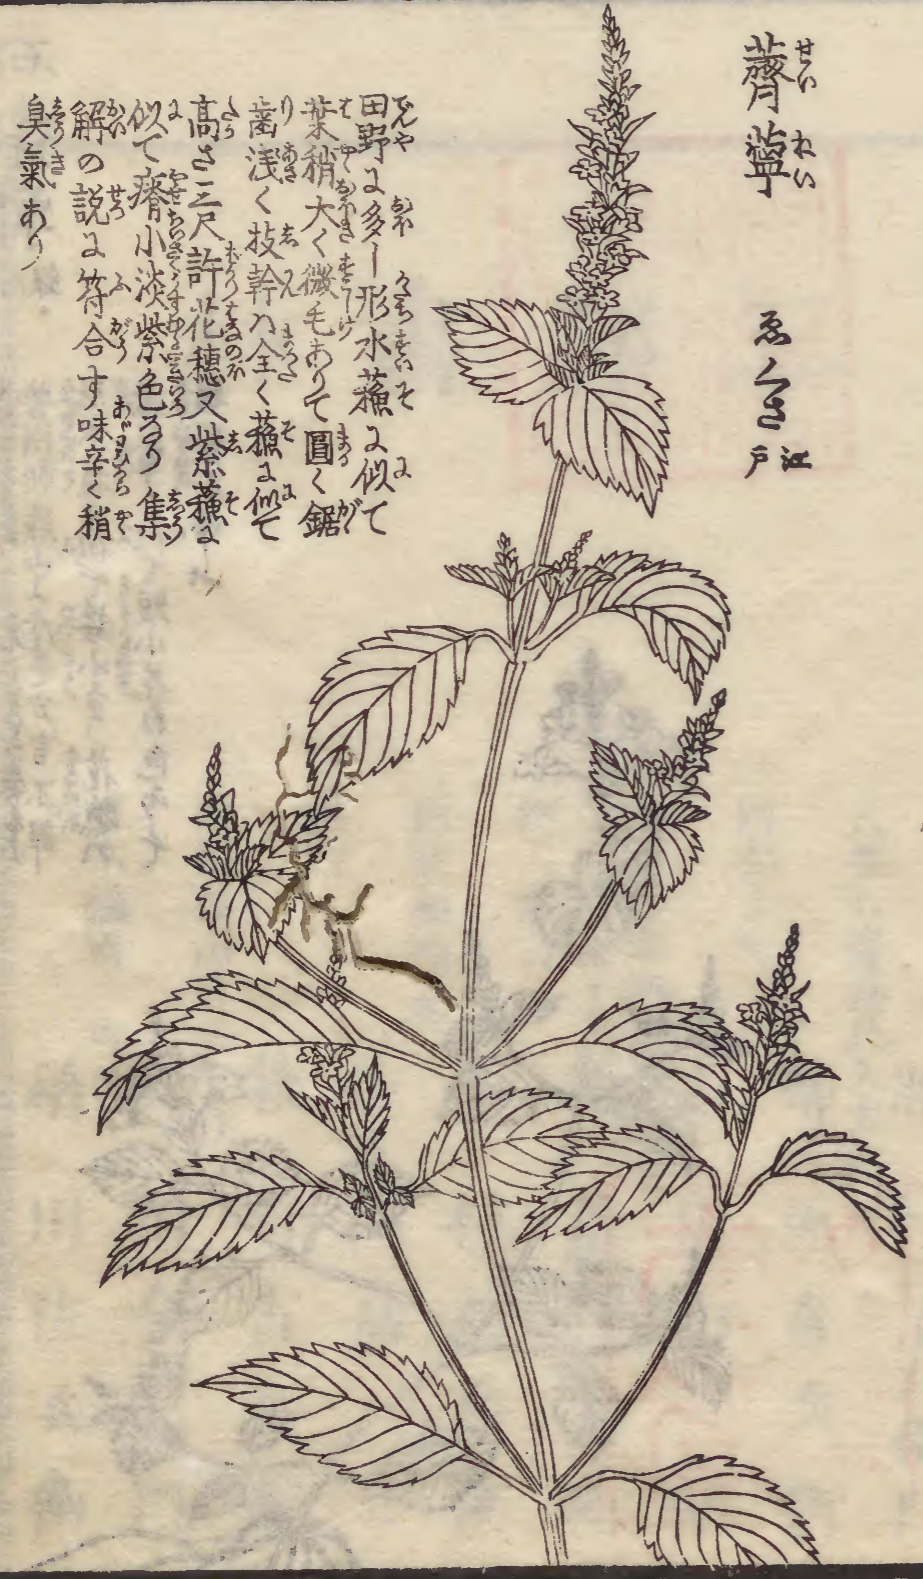 薺薴
せい ねい
ゑくさ 江戸
田野に多し形水蘓に似て
葉稍大く微毛ありて圓く鋸
歯浅く枝幹ハ全く蘓に似て
高さ三尺許花穗又紫蘓に
似て瘠小淡紫色なり集
解の説に符合す味辛く稍
臭氣あり